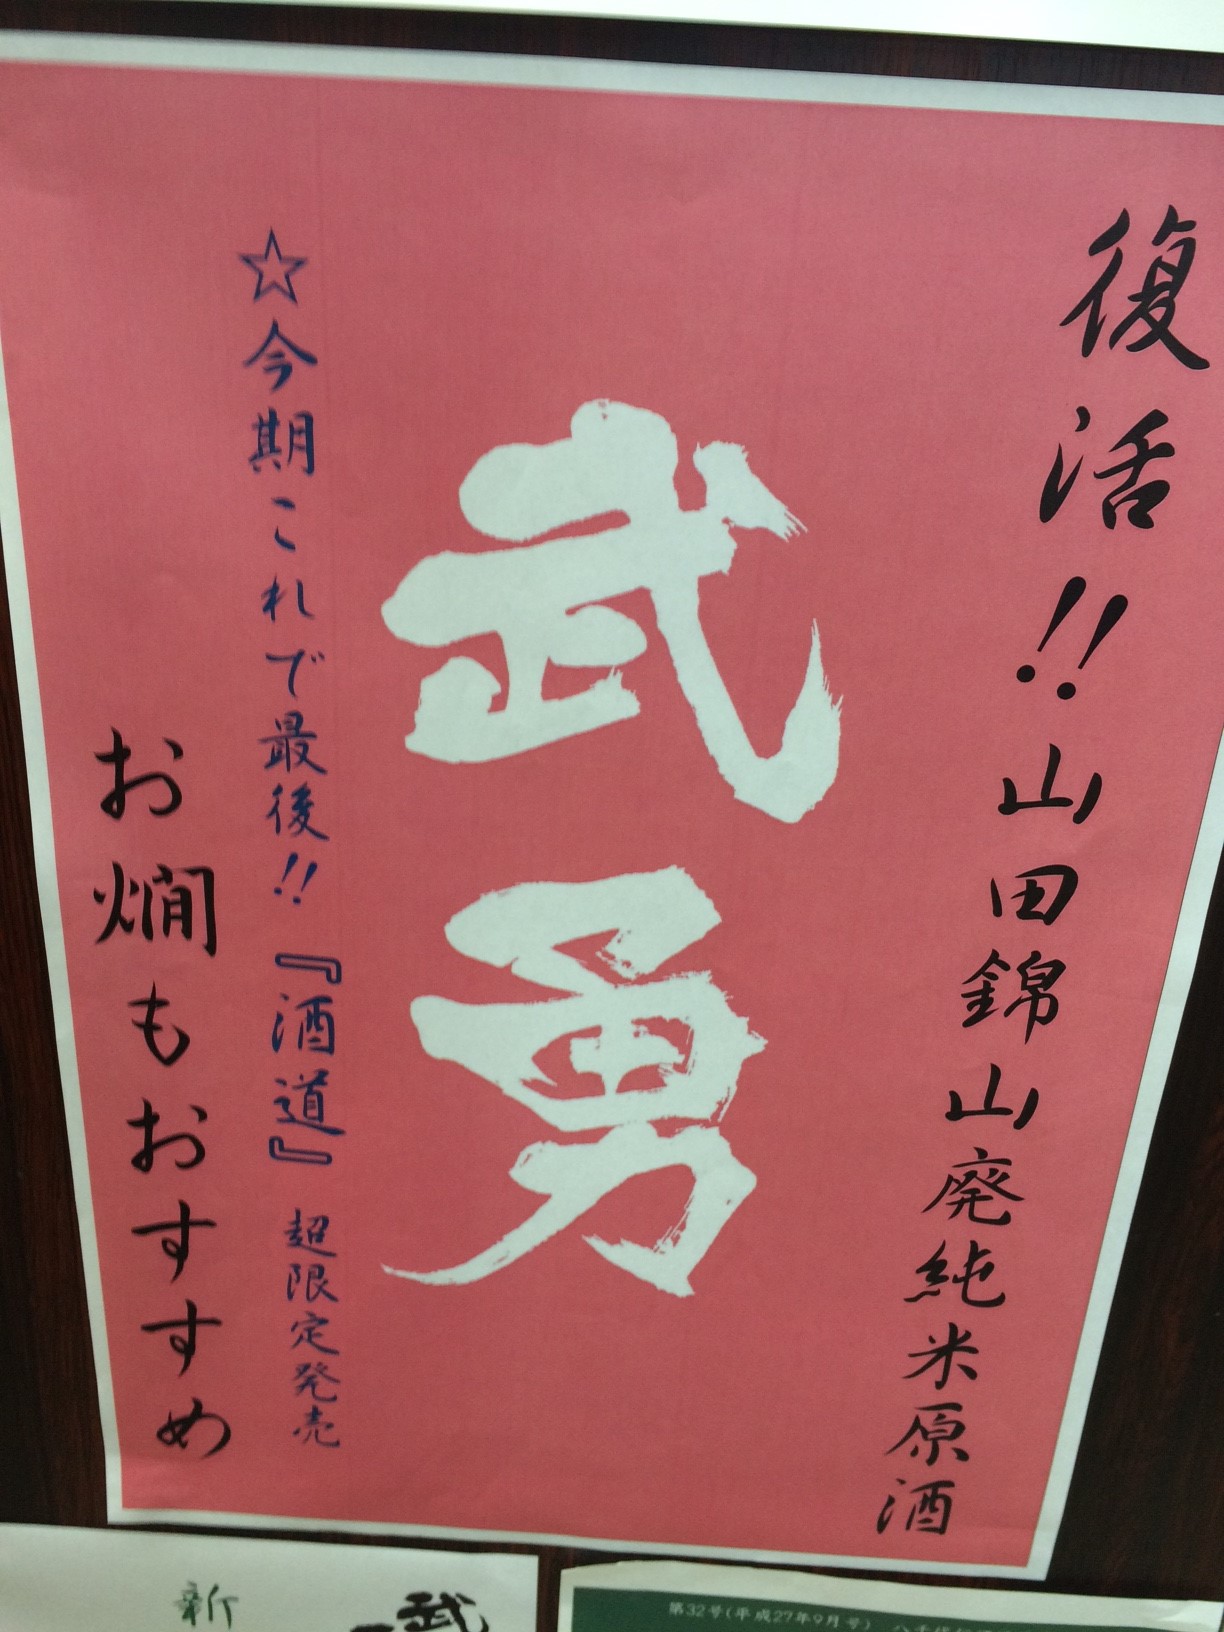 復活!!山田錦山廃純米原酒
武勇
☆今期これで最後!!『酒道』超限定発売
お燗もおすすめ
新
武
第32号(平成27年9月号)